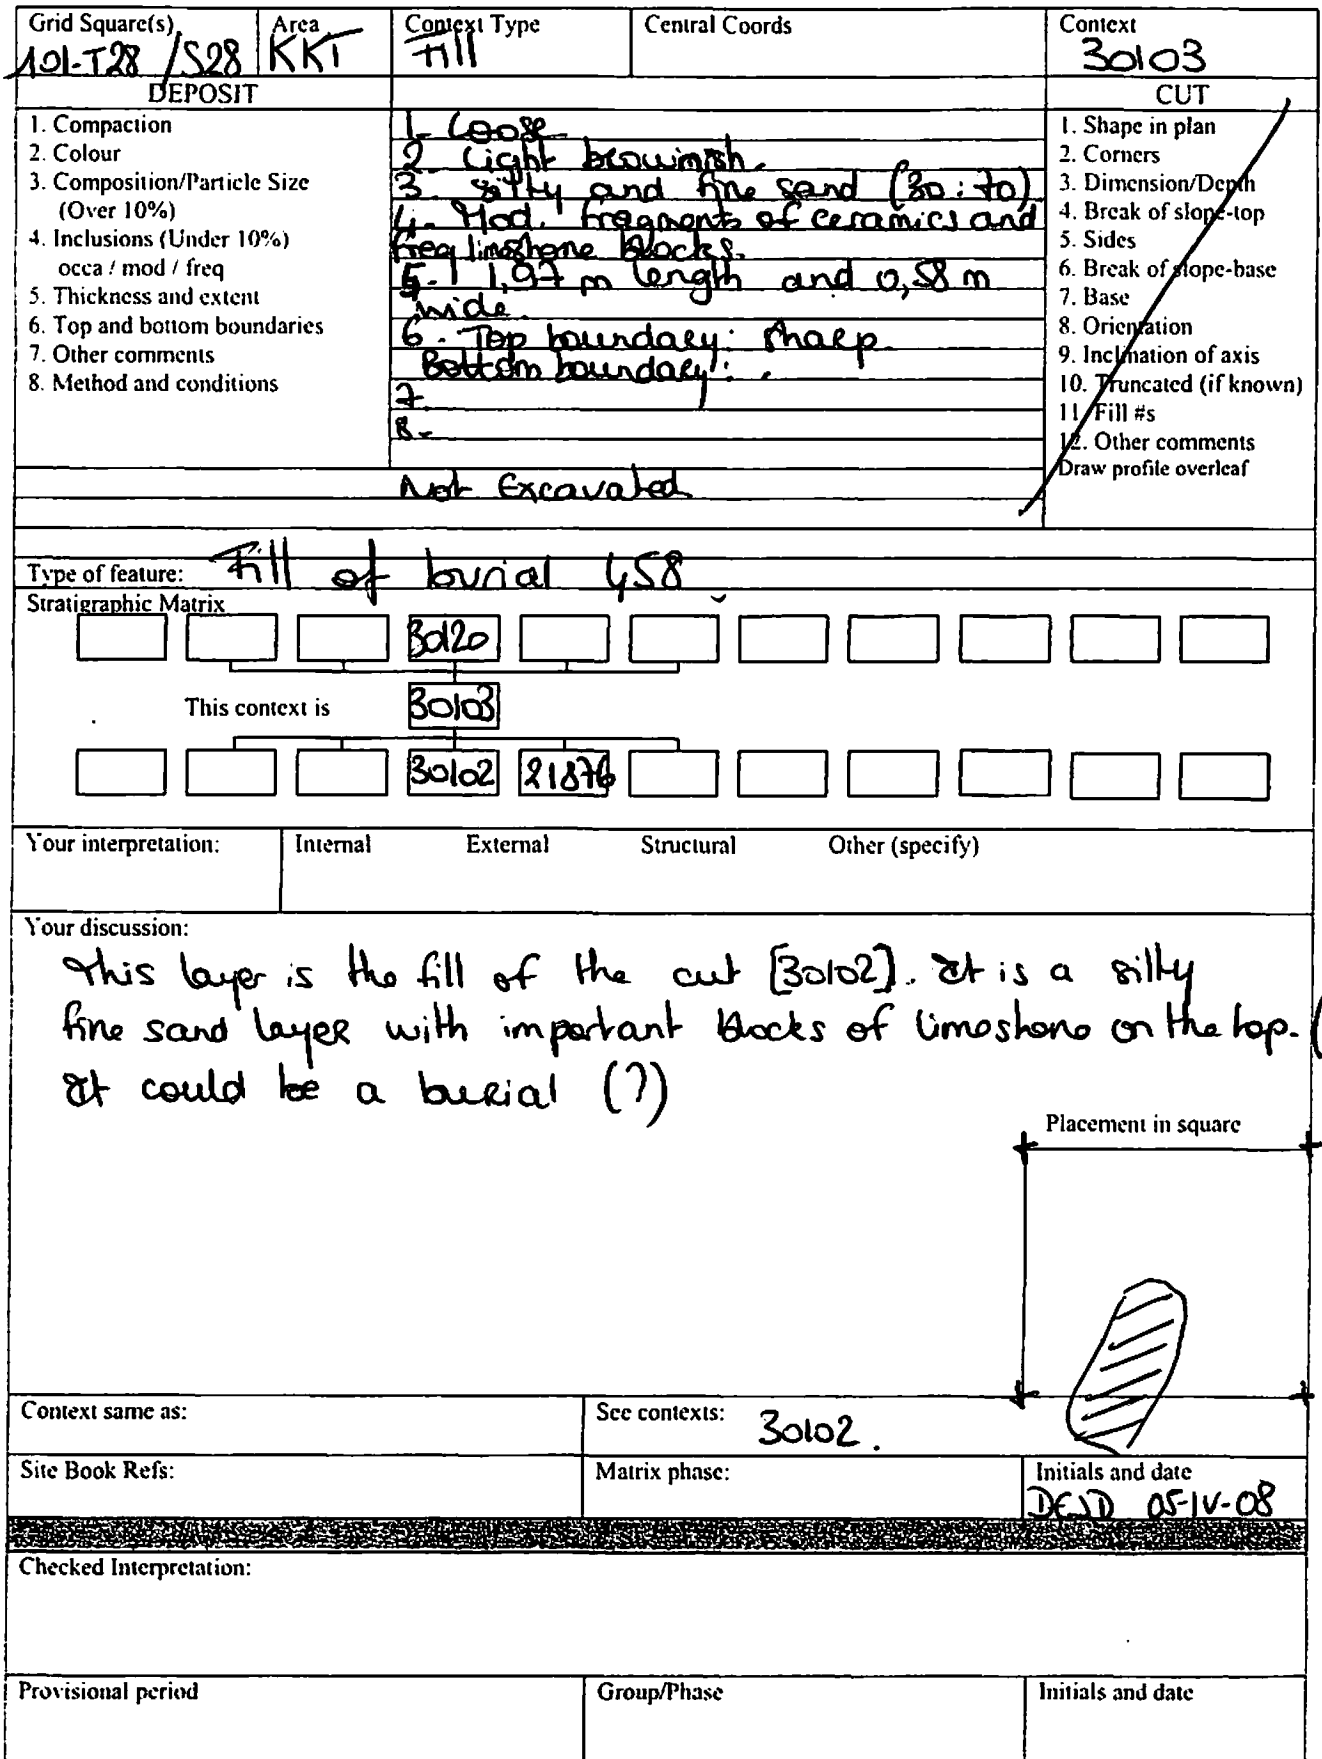 Grid Square(s) Area Context Type Central Coords Context
101-T28 /S28 KKT Fill 30103
DEPOSIT CUT
1. Compaction
2. Colour
3. Composition/Particle Size
(Over 10%)
4. Inclusions (Under 10%)
occa / mod / freq
5. Thickness and extent
6. Top and bottom boundaries
7. Other comments
8. Method and conditions
1- Loose
2 Light brownish.
3. silty and fine sand (30:70)
4. Mod. fragments of ceramics and
freq limestone blocks.
5. 1 1,97 m length and 0,58 m
wide.
6. Top boundary: sharp.
Bottom boundary: .
7.
8-
Not Excavated
1. Shape in plan
2. Corners
3. Dimension/Depth
4. Break of slope-top
5. Sides
6. Break of slope-base
7. Base
8. Orientation
9. Inclination of axis
10. Truncated (if known)
11. Fill #s
12. Other comments
Draw profile overleaf
Type of feature: Fill of burial 458
Stratigraphic Matrix
30120
This context is 30103
30102 21876
Your interpretation: Internal External Structural Other (specify)
Your discussion:
This layer is the fill of the cut [30102]. It is a silty
fine sand layer with important blocks of limestone on the top. (
It could be a burial (?)
Placement in square
Context same as: See contexts: 30102.
Site Book Refs: Matrix phase: Initials and date
DEJD 05-IV-08
Checked Interpretation:
Provisional period Group/Phase Initials and date